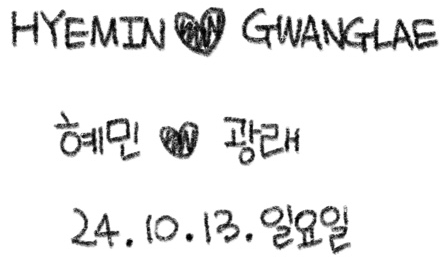 HYEMIN ♥ GWANGLAE
혜민 ♥ 광래
24.10.13.일요일